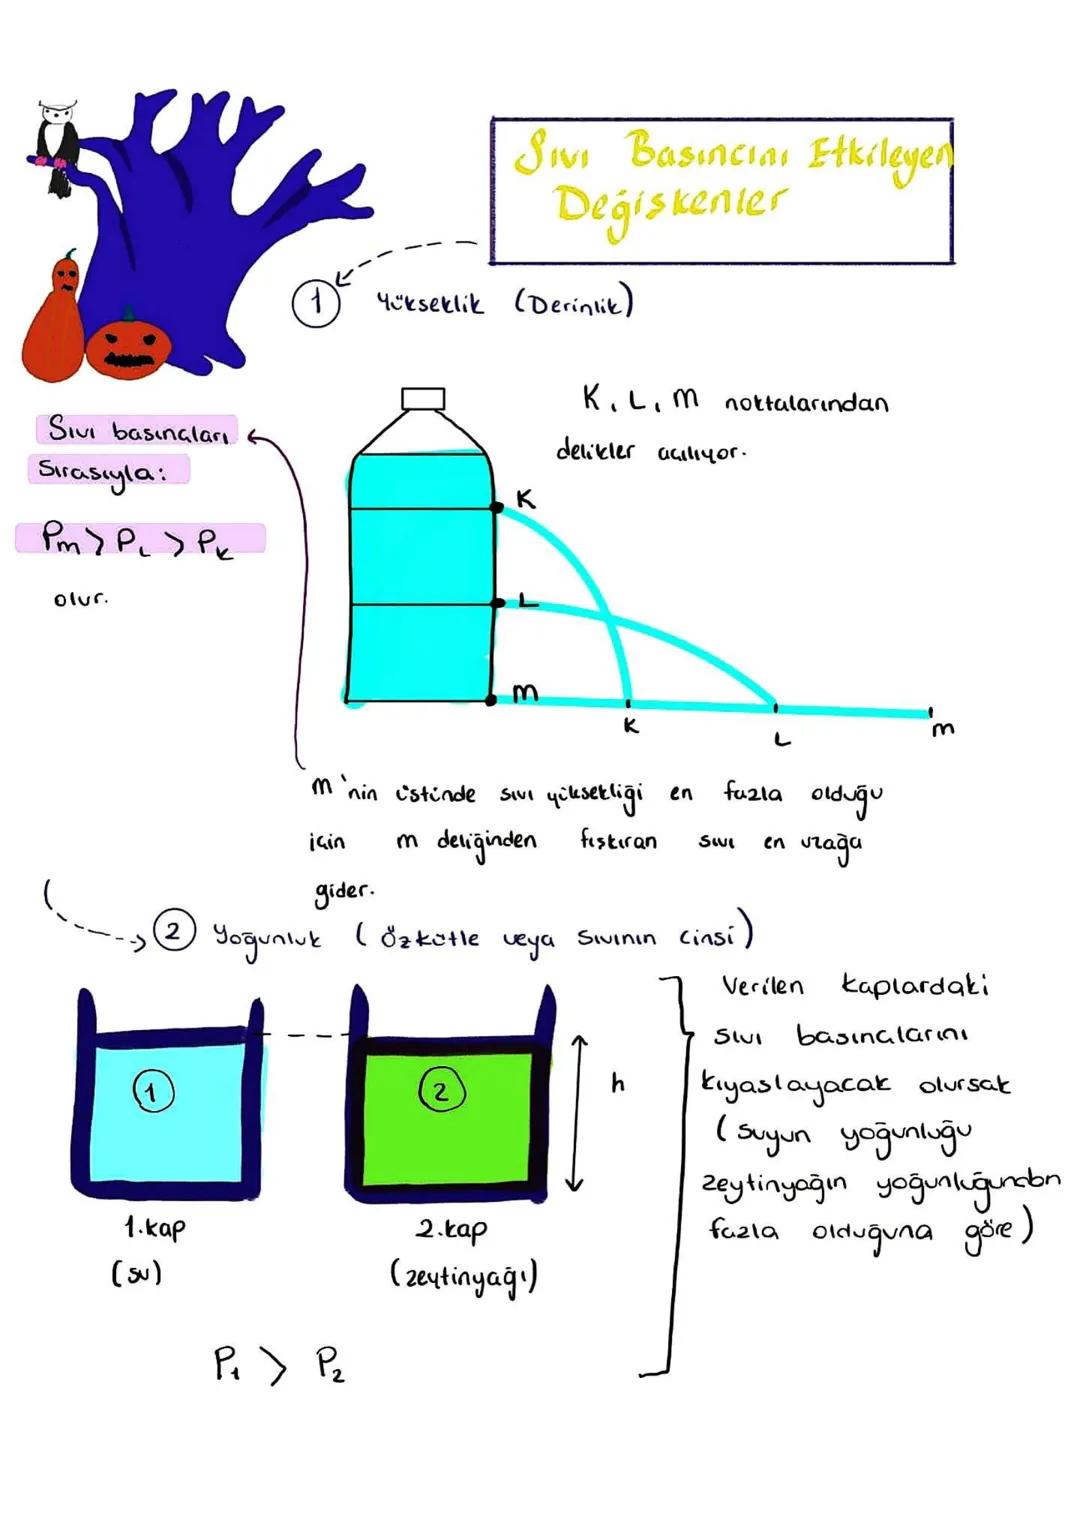 Sıvı Basıncını Etkileyen
Değişkenler
1 Yükseklik (Derinlik)
K, L, M noktalarından
delikler açılıyor.
Sıvı basınçları
Sırasıyla:
Pm > PL > PK
olur.
K
L
m
K
L
m
m'nin üstünde sıvı yüksekliği en fazla olduğu
için m deliğinden fışkıran sıvı en uzağa
gider.
2 Yoğunluk (Özkütle veya Sıvının cinsi)
Verilen kaplardaki
sıvı basınçlarını
kıyaslayacak olursak
(suyun yoğunluğu
zeytinyağın yoğunluğundan
fazla olduğuna göre)
1
2
h
1.kap
(su)
2.kap
(zeytinyağı)
P1 > P2